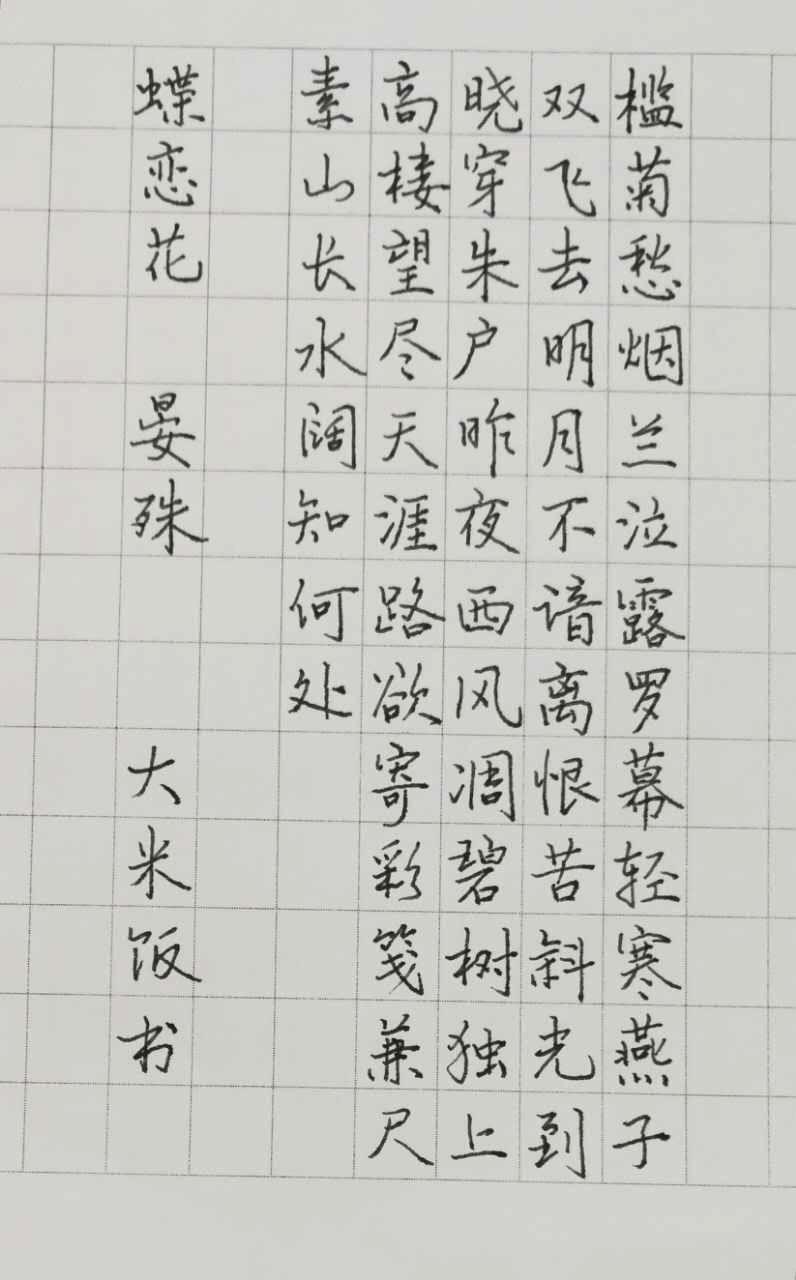 槛菊愁烟兰泣露罗幕轻寒燕子
双飞去明月不谙离恨苦斜光到
晓穿朱户昨夜西风凋碧树独上
高楼望尽天涯路欲寄彩笺兼尺
素山长水阔知何处
蝶恋花 晏殊 大米饭书